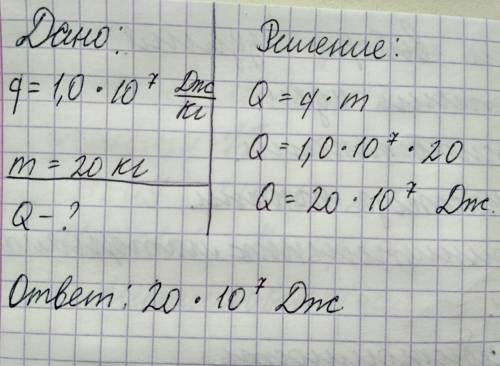 Дано:
q = 1,0 · 10⁷ Дж/кг
m = 20 кг
Q - ?
Решение:
Q = q · m
Q = 1,0 · 10⁷ · 20
Q = 20 · 10⁷ Дж.
Ответ: 20 · 10⁷ Дж